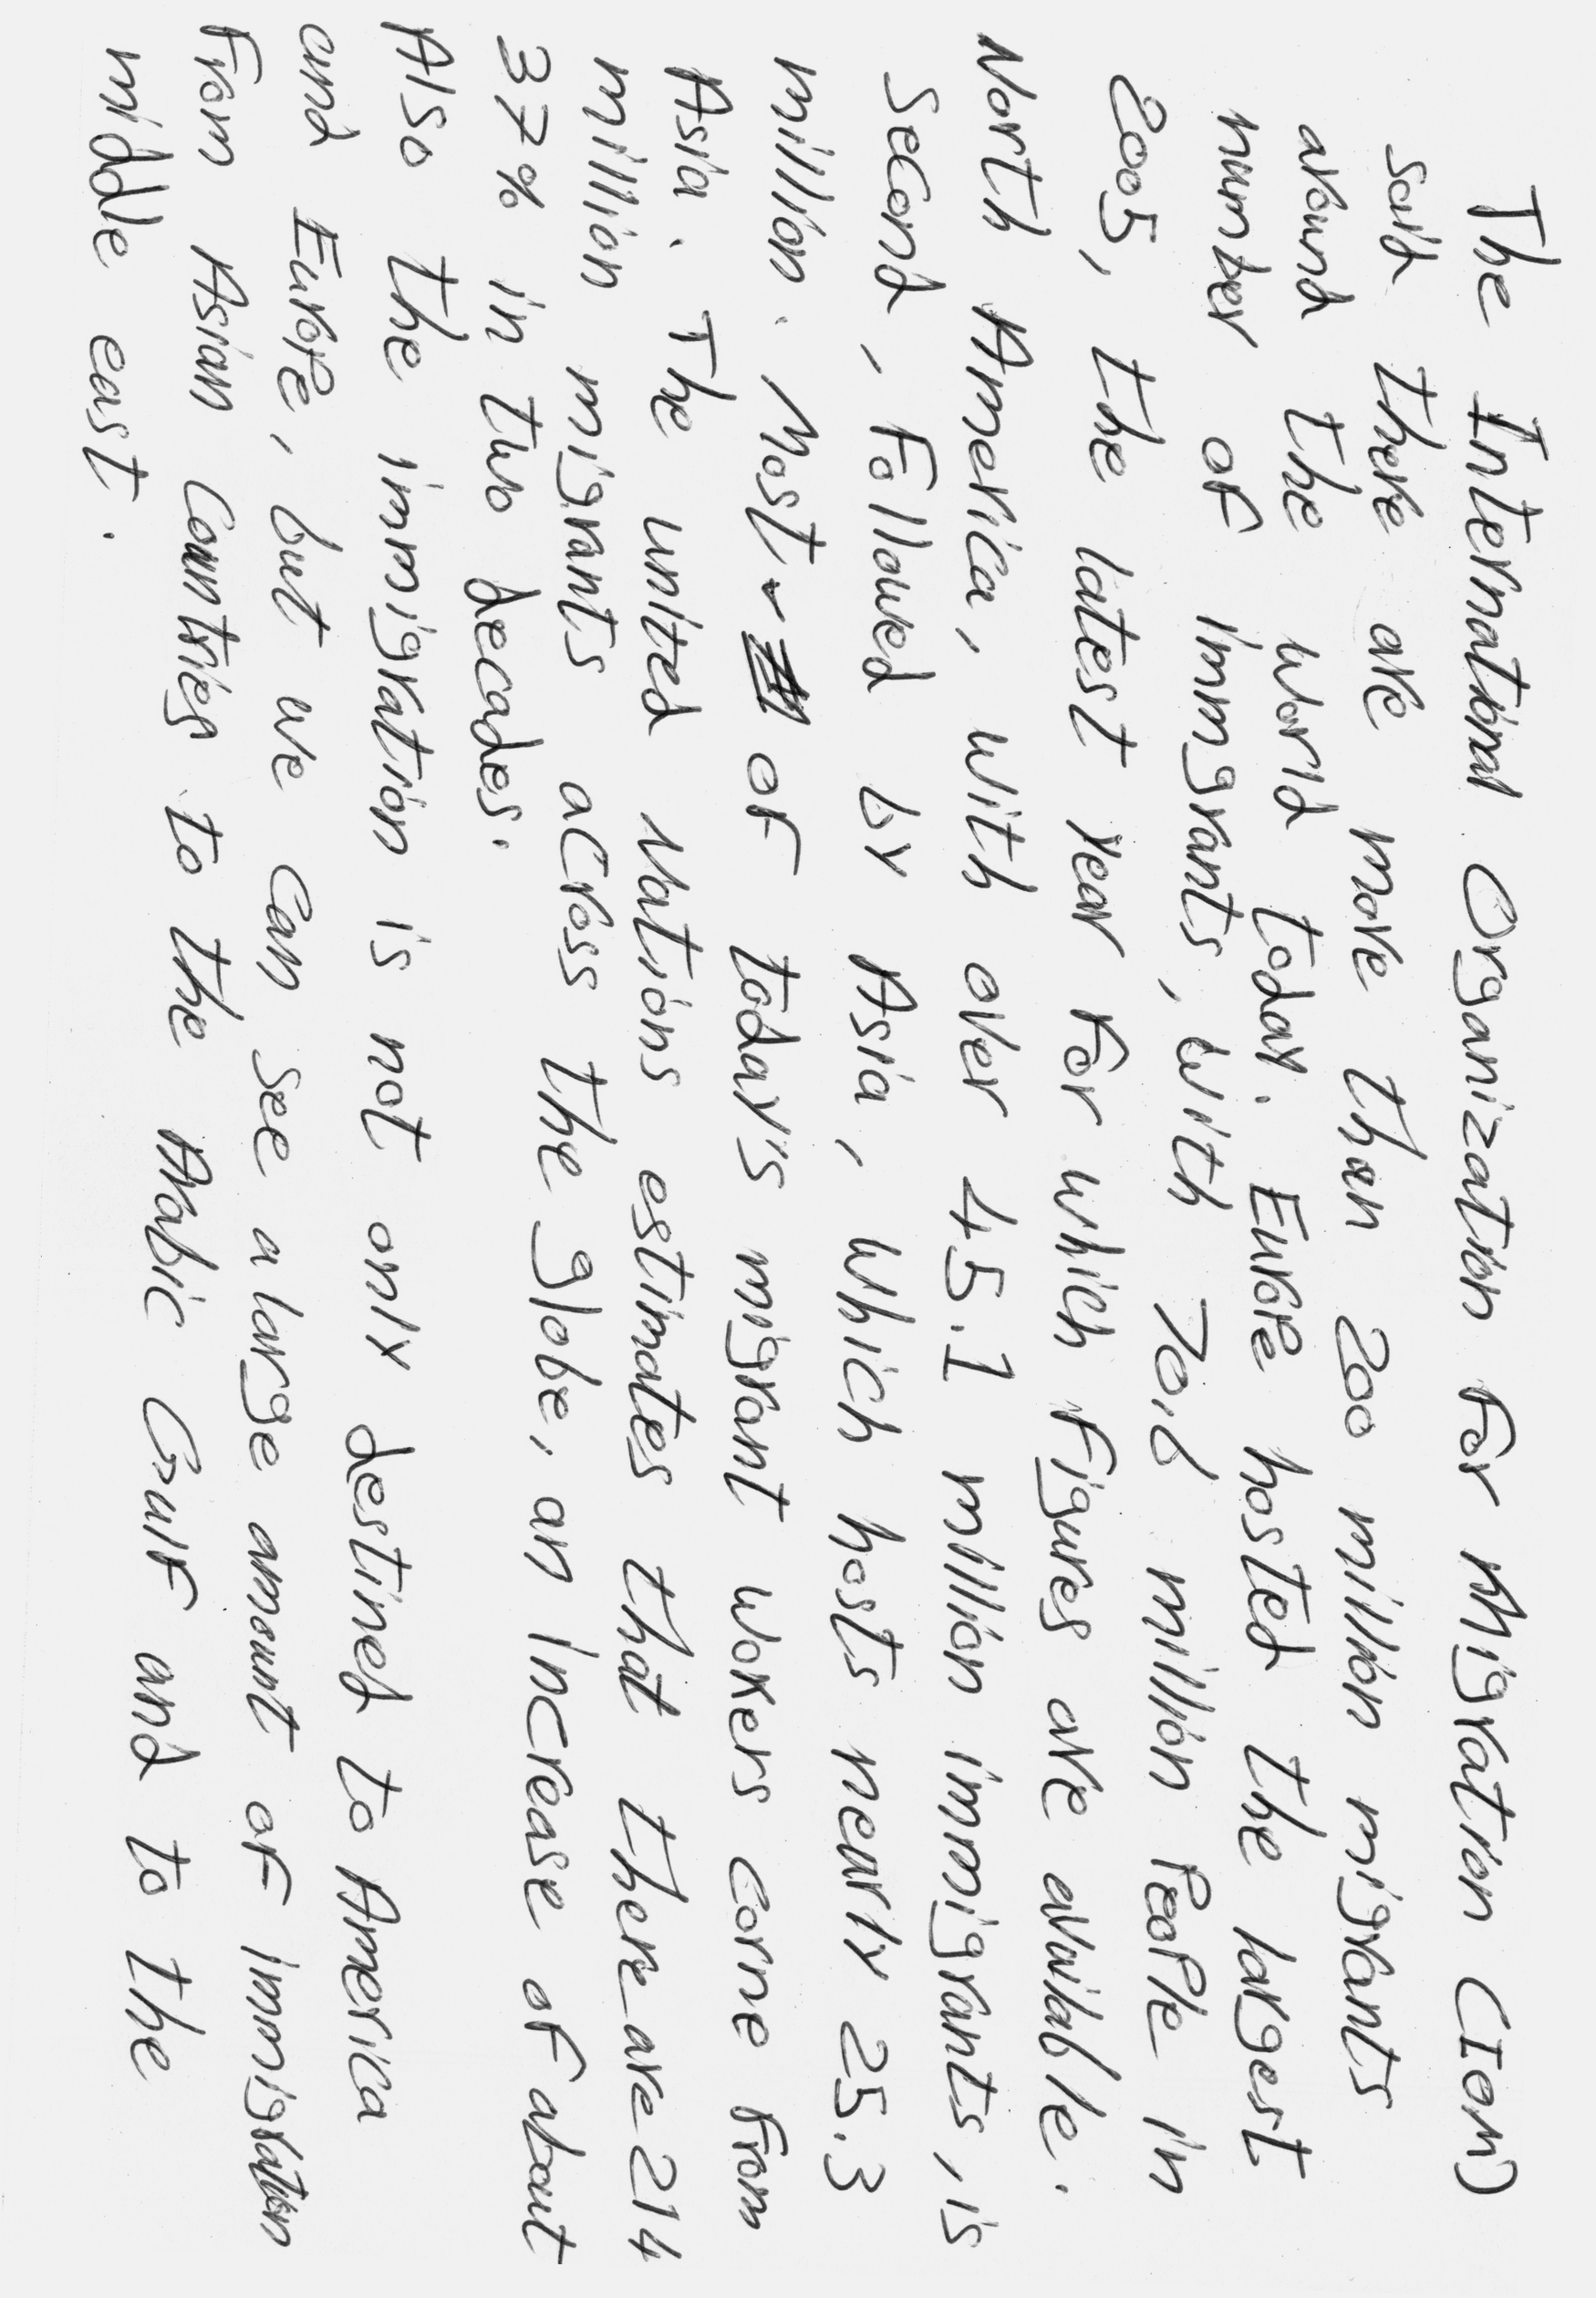 The International Organization For Migration (IOM)
said there are more than 200 million migrants
around the world today. Europe hosted the largest
number of immigrants, with 70.6 million people in
2005, the latest year For which Figures are available.
North America, with over 45.1 million immigrants, is
second, Followed by Asia, which hosts nearly 25.3
million. Most of today's migrant workers come From
Asia. The united Nations estimates that there are 214
million migrants across the globe, an increase of about
37% in two decades.
Also the immigration is not only destined to America
and Europe, but we can see a large amount of immigration
From Asian Countries to the Arabic Gulf and to the
middle east.